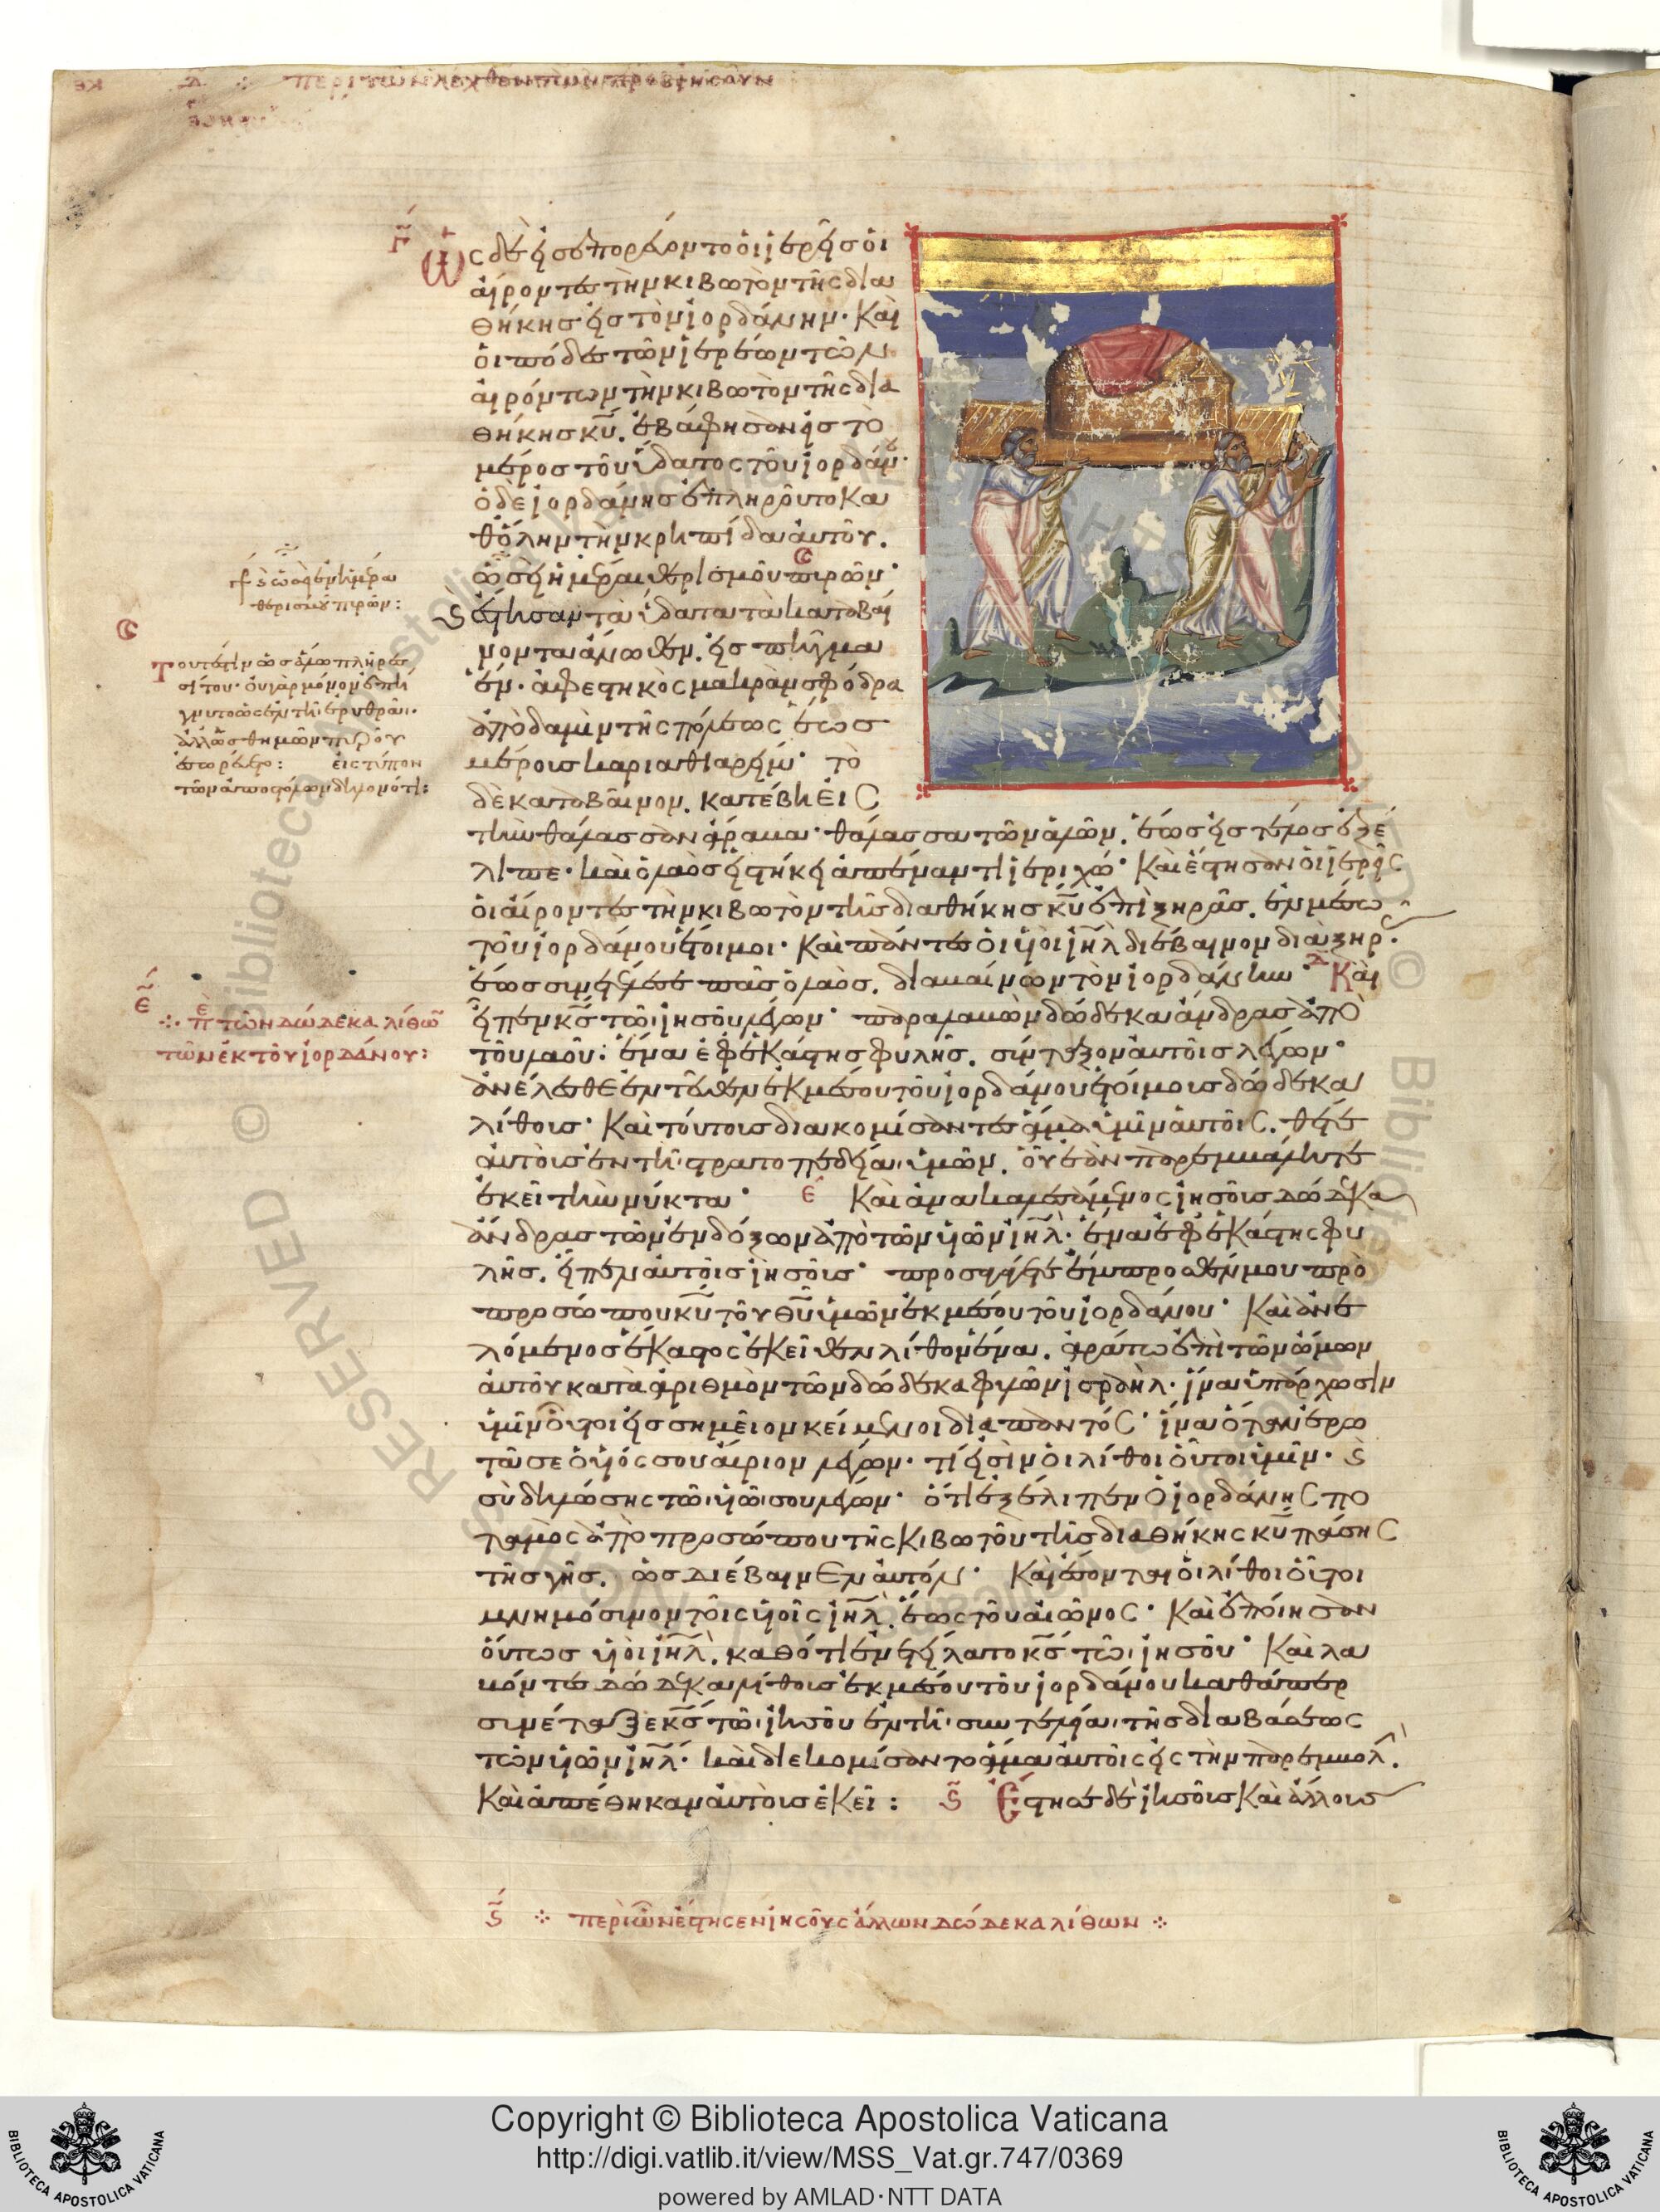 κε δ ⁘ περὶ τῶν λεχθέντων
Γ Ὡς δὲ εἰσεπορεύοντο οἱ ἱερεῖς οἱ
αἴροντες τὴν κιβωτὸν τῆς δια
θήκης εἰς τὸν ἰορδάνην· Καὶ
οἱ πόδες τῶν ἱερέων τῶν
αἰρόντων τὴν κιβωτὸν τῆς δια
θήκης κυ. ἐβάφησαν εἰς τὸ
μέρος τοῦ ὕδατος τοῦ ἰορδάνου·
ὁ δὲ ἰορδάνης ἐπληροῦτο κα
θόλην τὴν κρηπίδα αὐτοῦ.
ὡσεὶ ἡμέραι θερισμοῦ πυρῶν·
ϛ ἔστησαν τὰ ὕδατα τὰ καταβαί
νοντα ἄνωθεν. ἔστη πῆγμα
ἕν· ἀφεστηκὸς μακρὰν σφόδρα
ἀπὸ δαμὶν τῆς πόλεως ἕως
μέρους καριαθιαρείμ· τὸ
δὲ καταβαῖνον. κατέβη εἰς
τὴν θάλασσαν ἄραβα· θάλασσαν τῶν ἁλῶν. ἕως εἰς τέλος ἐξέ
λιπε· καὶ ὁ λαὸς εἱστήκει ἀπέναντι ἱεριχώ· Καὶ ἔστησαν οἱ ἱερεῖς
οἱ αἴροντες τὴν κιβωτὸν τῆς διαθήκης κυ ἐπὶ ξηρᾶς. ἐν μέσω
τοῦ ἰορδάνου ἕτοιμοι· Καὶ πάντες οἱ υἱοὶ ιηλ διέβαινον διὰ ξηρ.
ἕως συνετέλεσε πᾶς ὁ λαὸς. διαβαίνων τὸν ἰορδάνην· δ Καὶ
εἶπεν κς τῶ ἰησοῦ λέγων· παραλαβὼν δώδεκα ἄνδρας ἀπὸ
τοῦ λαοῦ· ἕνα ἐφ ἑκάστης φυλῆς. σύνταξον αὐτοῖς λέγων·
ἀνέλεσθε ἐντεῦθεν ἐκ μέσου τοῦ ἰορδάνου ἑτοίμους δώδεκα
λίθους· Καὶ τούτους διακομίσαντες ἅμα ὑμῖν αὐτοῖς. θέτε
αὐτοὺς ἐν τῆ στρατοπεδεία ὑμῶν. οὗ ἐὰν παρεμβάλητε
ἐκεῖ τὴν νύκτα· ε Καὶ ἀνακαλεσάμενος ἰησοῦς δώδεκα
ἄνδρας τῶν ἐνδόξων ἀπὸ τῶν υἱῶν ιηλ· ἕνα ἐφ ἑκάστης φυ
λῆς. εἶπεν αὐτοῖς ἰησοῦς· προσαγάγετε ἔμπροσθέν μου πρὸ
προσώπου κυ τοῦ θυ ὑμῶν ἐκ μέσου τοῦ ἰορδάνου· Καὶ ἀνε
λόμενος ἕκαστος ἐκεῖθεν λίθον ἕνα. ἀράτω ἐπὶ τῶν ὤμων
αὐτοῦ κατὰ ἀριθμὸν τῶν δώδεκα φυλῶν ἰσραὴλ· ἵνα ὑπάρχωσιν
ὑμῖν οὗτοι εἰς σημεῖον κείμενοι διαπαντός· ἵνα ὅταν ἐρω
τᾶ σε ὁ υἱός σου αὔριον λέγων· τί εἰσὶν οἱ λίθοι οὗτοι ὑμῖν· ϛ
σὺ δηλώσης τῶ υἱῶ σου λέγων· ὅτι ἐξέλιπεν ὁ ἰορδάνης πο
ταμὸς ἀπὸ προσώπου τῆς κιβωτοῦ τῆς διαθήκης κυ πάσης
τῆς γῆς. ὡς διέβαινεν αὐτόν· Καὶ ἔσονται οἱ λίθοι οὗτοι
μνημόσυνον τοῖς υἱοῖς ιηλ. ἕως τοῦ αἰῶνος· Καὶ ἐποίησαν
οὕτως υἱοὶ ιηλ. καθότι ἐνετείλατο κς τῶ ἰησοῦ· Καὶ λα
βόντες δώδεκα λίθους ἐκ μέσου τοῦ ἰορδάνου καθάπερ
συνέταξε κς τῶ ἰησοῦ ἐν τῆ συντελεία τῆς διαβάσεως
τῶν υἱῶν ιηλ· καὶ διεκόμισαν το ἅμα αὐτοῖς εἰς τὴν παρεμβολ.
Καὶ ἀπέθηκαν αὐτοὺς ἐκεῖ: ϛ Ἔστησε δὲ ἰησοῦς Καὶ ἄλλους
ϛ ⁘ περὶ ὧν ἔστησεν ἰησοῦς ἄλλων δώδεκα λίθων ⁘
θερισμοῦ πυρῶν:
Τουτέστιν
σίτου· οὐ γὰρ μόνον ἐπή
γνυτο ὡς ἐν τῆ ἐρυθρᾶ·
εἰς τύπον
τῶν ἀποστόλων δηλονότι:
ε ⁘ π τῶν δώδεκα λίθω
τῶν ἐκ τοῦ ἰορδάνου:
Copyright © Biblioteca Apostolica Vaticana
http://digi.vatlib.it/view/MSS_Vat.gr.747/0369
powered by AMLAD·NTT DATA
BIBLIOTECA APOSTOLICA VATICANA
BIBLIOTECA APOSTOLICA VATICANA